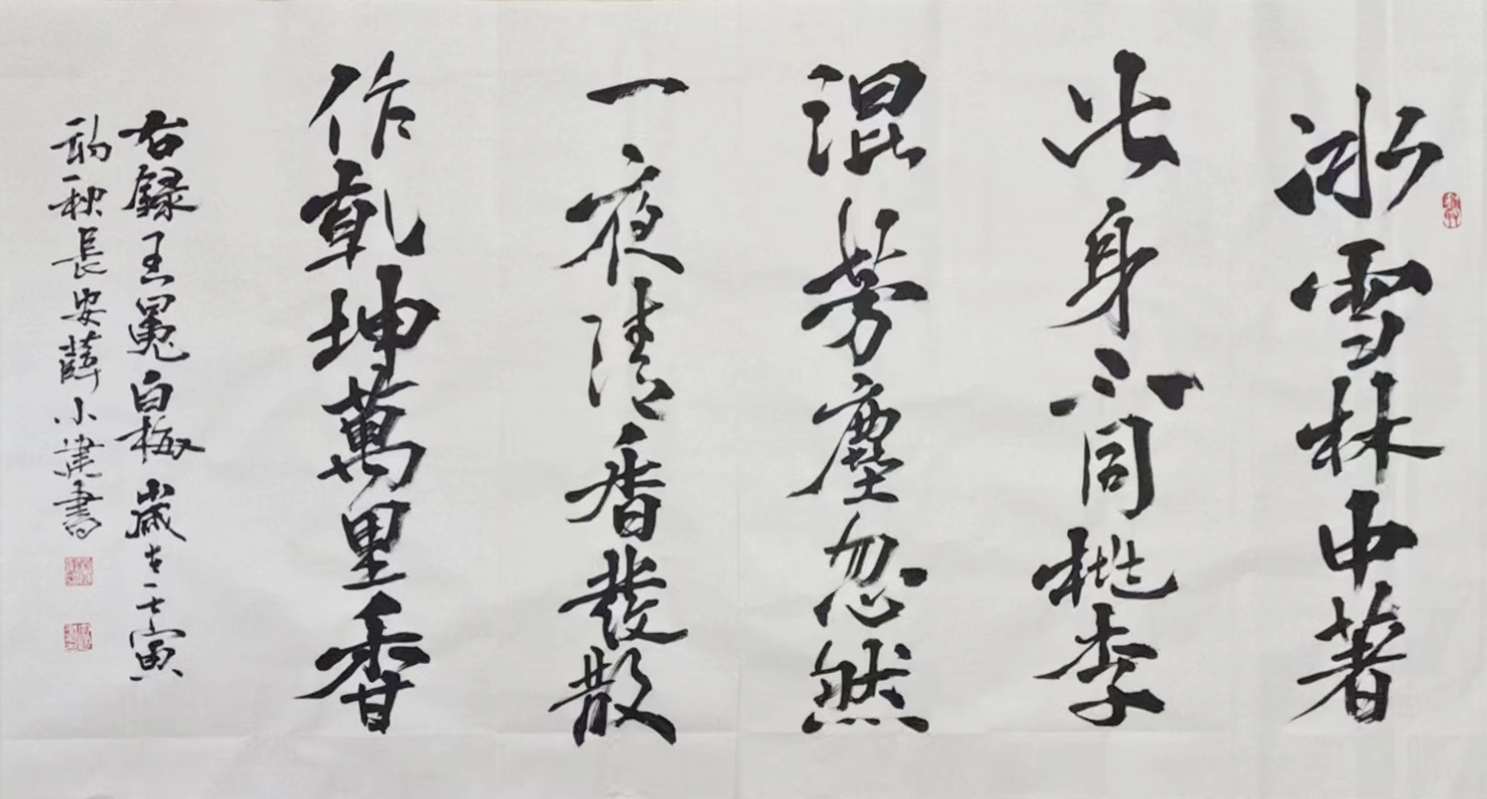 冰雪林中著
此身不同桃李
混芳塵忽然
一夜清香發散
作乾坤萬里香
右錄王冕白梅歲在壬寅
初秋長安薛小建書